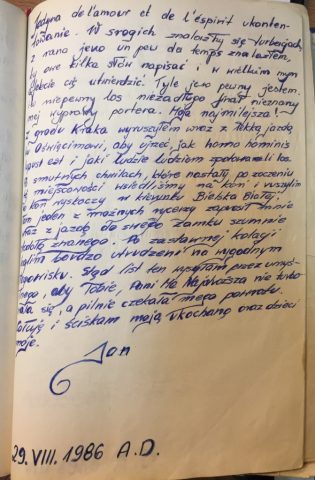 Jedyna de l'amour et de l'éspirit ukonten-
towanie. W srogich znalazłszy się turbacjach,
z rana jeno un peu de temps znalazłem,
by owe kilka słów napisać i w wielkim mym
cię utwierdzić. Tyle jeno pewny jestem.
niepewny los niezadługo finał nieznany
mej wyprawy portera. Moja najmilejsza!
z grodu Kraka wyruszyłem wraz z lekką jazdą
ku Oświęcimowi, aby ujrzeć, jak homo hominis
est est i jaki ludzie ludziom zgotowali los.
smutnych chwilach, które nastały po zoczeniu
miejscowości wsiedliśmy na koń i ruszyliśmy
koń wyskoczy w kierunku Bielska Białej,
Tam jeden z możnych rycerzy zaprosił mnie
wraz z jazdą do swego zamku szumnie
znanego. Po zastawnej kolacji
bardzo utrudzeni na wygodnym
Stąd list ten wysyłam przez umyśl-
nego, aby Tobie, Pani Ma Najdroższa nie turbo-
wała się, a pilnie czekała mego powrotu.
Całuję i ściskam moją ukochaną oraz dzieci
moje.
Jan
29. VIII. 1986 A.D.